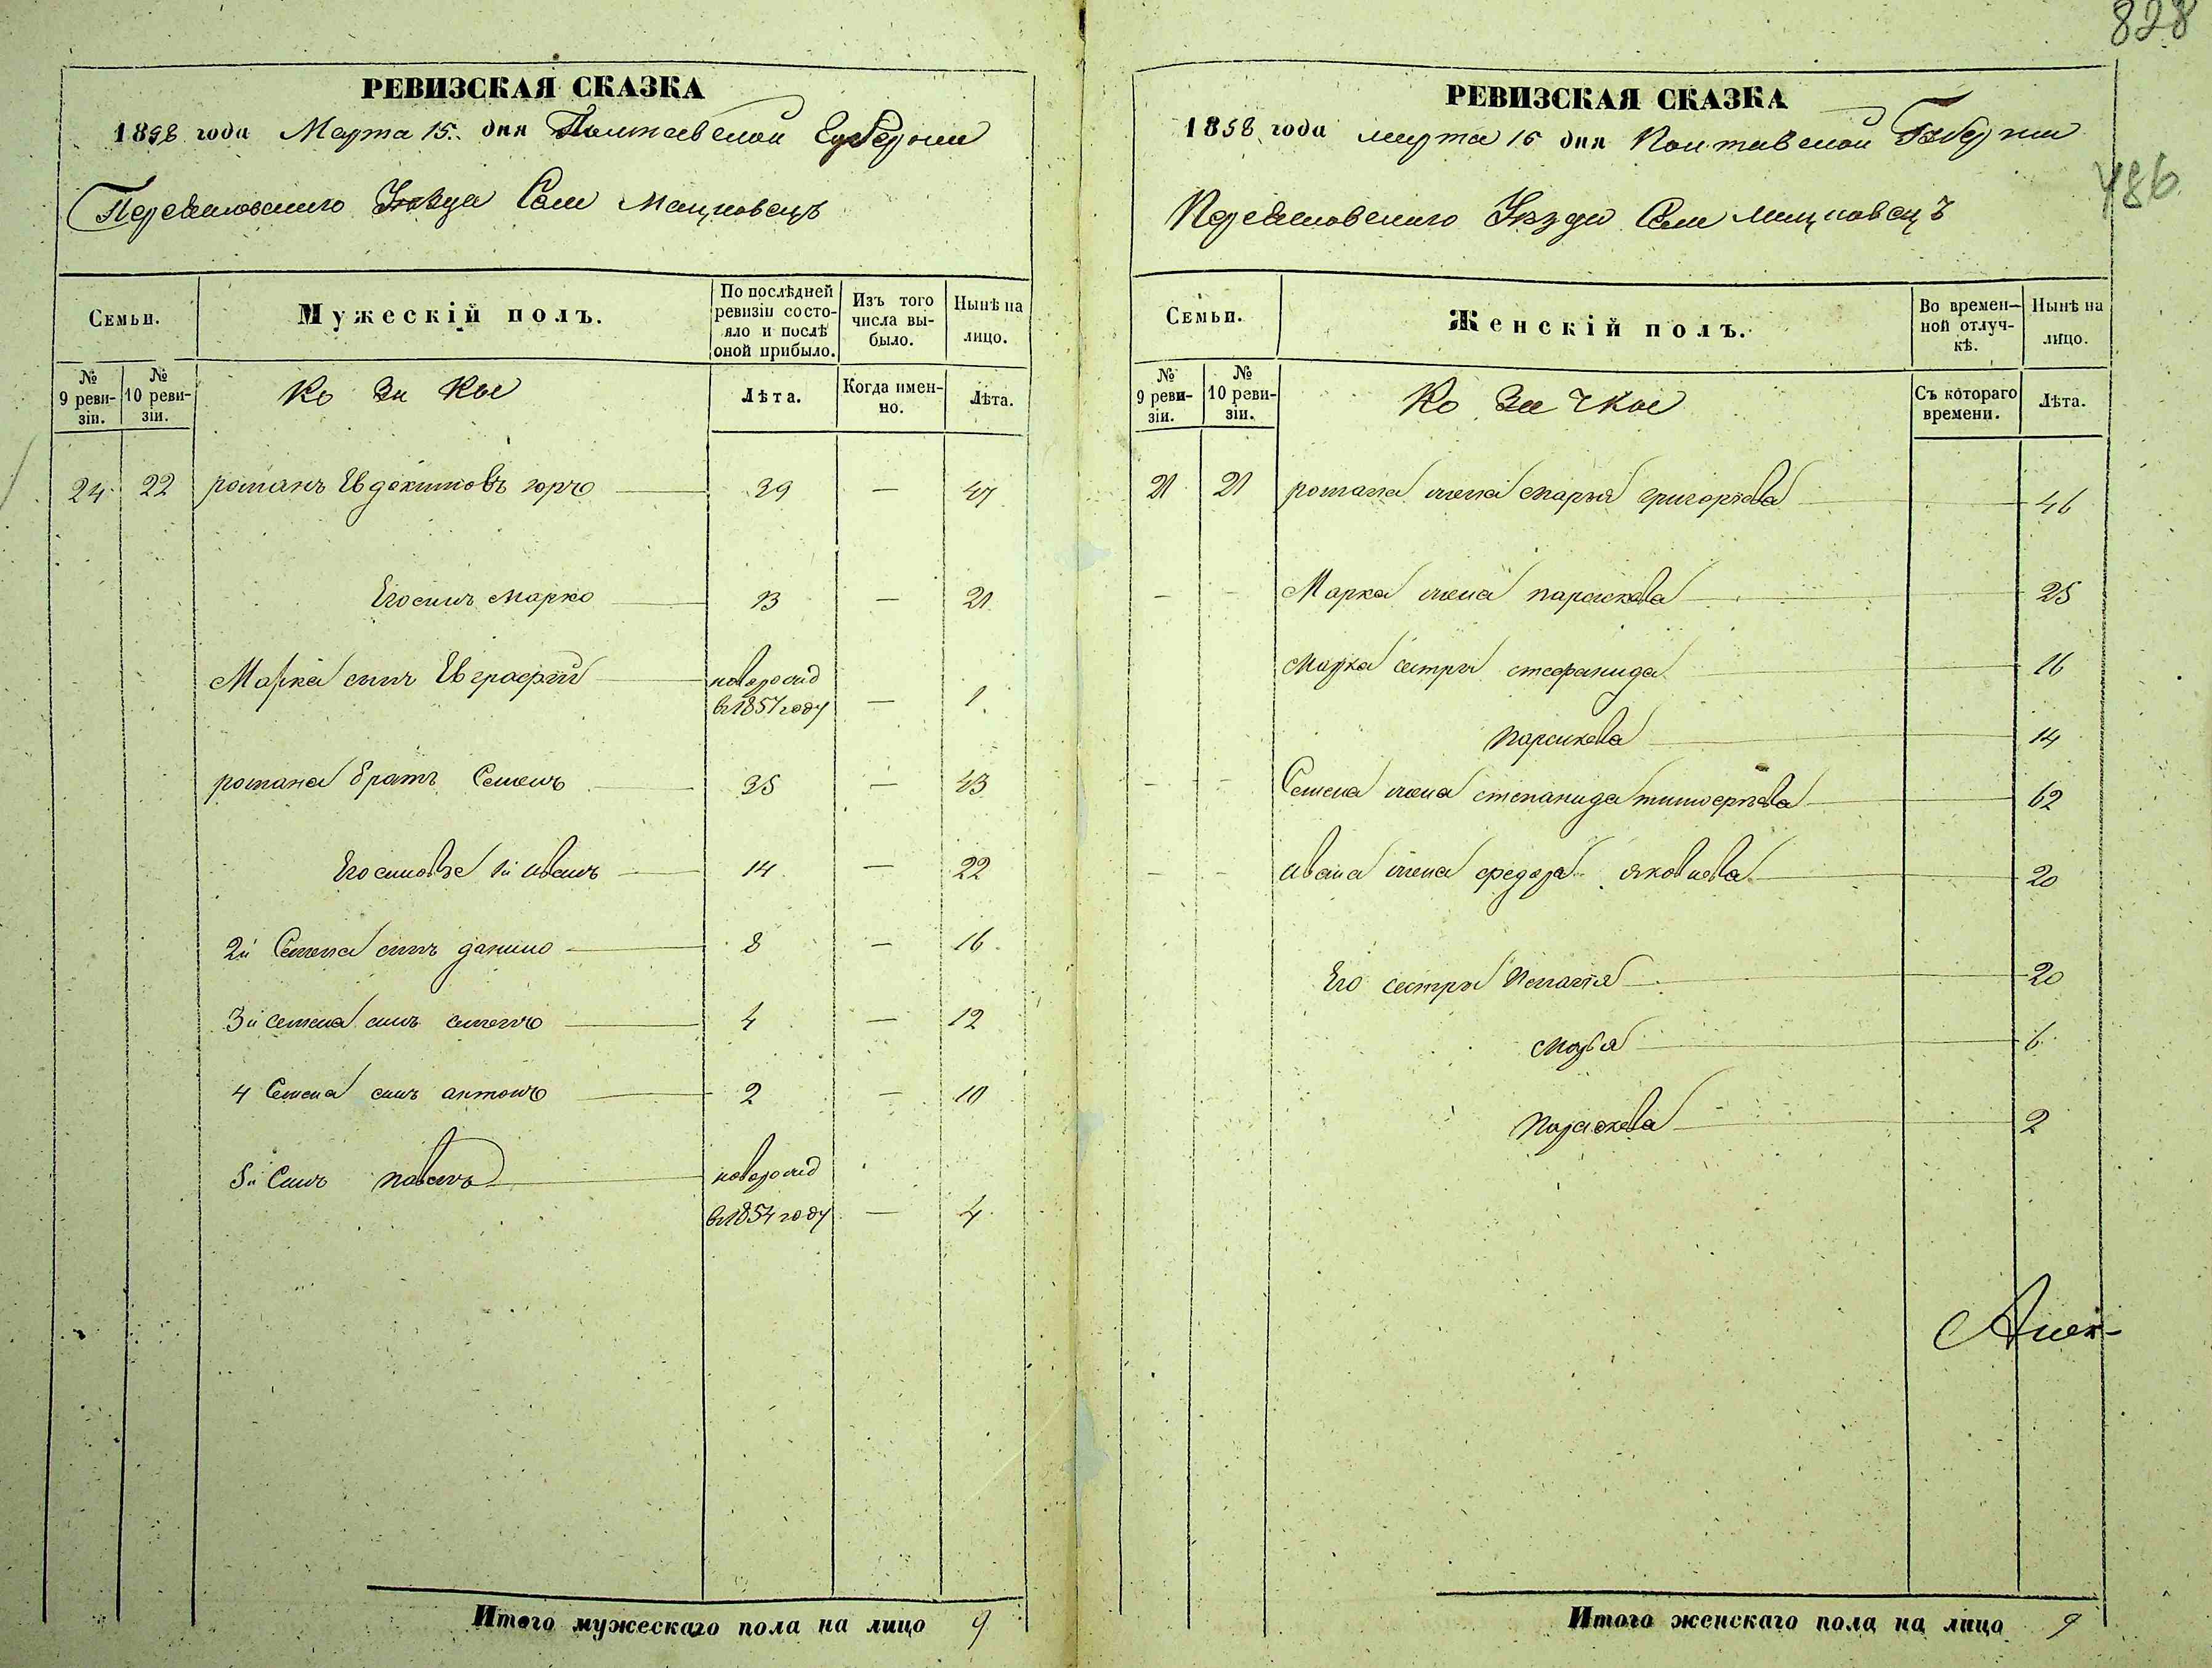 828
486
РЕВИЗСКАЯ СКАЗКА
1858 года Марта 15. дня Полтавской Губернии
Переяславского Уѣзда Села Мацковецъ
Семьи.
Мужескій полъ.
По послѣдней ревизіи состояло и послѣ оной прибыло.
Изъ того числа выбыло.
Нынѣ на лицо.
№ 9 ревизіи.
№ 10 ревизіи.
Ко за кы
Лѣта.
Когда именно.
Лѣта.
24 22 романъ Евдокимовъ 39 — 47
Его синъ Марко 13 — 21
Марка синъ Евграфий новорожд
в 1857 году — 1
романа братъ Семенъ 35 — 43
Его синовъе 1й иванъ 14 — 22
2й Семена синъ данило 8 — 16
3й семена синъ семенъ 4 — 12
4 Семена синъ антонъ 2 — 10
5й Синъ павелъ новорожд
в 1854 году — 4
Итого мужескаго пола на лицо 9
РЕВИЗСКАЯ СКАЗКА
1858 года марта 15 дня Полтавской Губернии
Переяславского Уѣзда Села мацковецъ
Семьи.
Женскій полъ.
Во временной отлучкѣ.
Нынѣ на лицо.
№ 9 ревизіи.
№ 10 ревизіи.
Ко за чкы
Съ котораго времени.
Лѣта.
21 21 романа жена марья григорьева 46
— - Марка жена параскева 25
Марка сестры стефанида 16
параскева 14
— - - Семена жена степанида тимоеръева 62
— - ивана жена федора яковлева 20
Его сестры Пелагѣя 20
марья 6
Параскева 2
Алек-
Итого женскаго пола на лицо 9